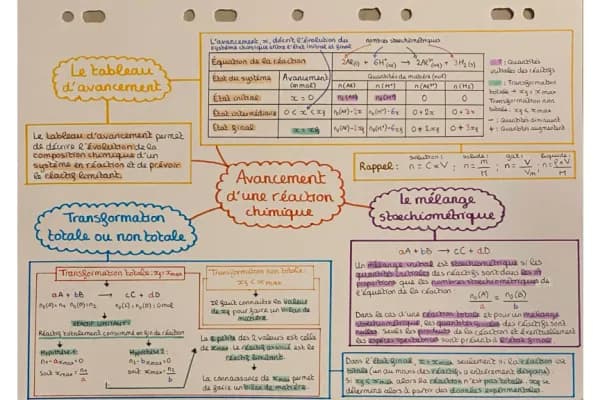 Le tableau
d'avancement
L'avancement, x, décrit l'évolution du
système chimique entre l'état initial et final
nombres stoechiométriques
Équation de la réaction 2Al(s) + 6H⁺(aq) → 2Al³⁺(aq) + 3H₂(g)
État du système Avancement (en mol) Quantités de matière (mol)
n(Al) n(H⁺) n(Al³⁺) n(H₂)
État initial x = 0 n₀(Al) n₀(H⁺) 0 0
État intermédiaire 0 < x < xf n₀(Al)-2x n₀(H⁺)-6x 0 + 2x 0 + 3x
État final x = xf n₀(Al)-2xf n₀(H⁺)-6xf 0 + 2xf 0 + 3xf
: Quantités
initiales des réactifs
: Transformation
totale → xf = xmax
Transformation non
totale : xf < xmax
- : Quantités diminuant
+ : Quantités augmentant
Le tableau d'avancement permet
de décrire l'évolution de la
composition chimique d'un
système en réaction et de prévoir
le réactif limitant.
Rappel :
solution : n = C × V ;
solide : n = m/M ;
gaz : n = V/Vm ;
liquide : n = ρ × V/M
Avancement
d'une réaction
chimique
Transformation
totale ou non totale
Transformation totale : xf = xmax
aA + bB → cC + dD
n₀(A) = n₁ n₀(B) = n₂ n₀(C) = n₀(D) = 0 mol
RÉACTIF LIMITANT :
Réactif totalement consommé en fin de réaction
Hypothèse 1 :
n₁ - a xmax = 0
Soit xmax = n₁/a
Hypothèse 2 :
n₂ - b xmax = 0
soit xmax = n₂/b
Transformation non totale :
xf < xmax
Il faut connaître la valeur
de xf pour faire un bilan de
matière.
La + petite des 2 valeurs est celle
de xmax. Le réactif associé est le
réactif limitant.
La connaissance de xmax permet
de faire un bilan de matière.
Le mélange
stoechiométrique
aA + bB → cC + dD
Un mélange initial est stoechiométrique si les
quantités initiales des réactifs sont dans les m̂
proportions que les nombres stoechiométriques de
l'équation de la réaction
n₀(A)/a = n₀(B)/b
Dans le cas d'une réaction totale et pour un mélange
stoechiométrique, les quantités finales des réactifs sont
nulles. Seuls les produits de la réaction et éventuellement
les espèces spectatrices sont présents à l'état final.
Dans l'état final, x = xmax seulement si la réaction est
totale (un au moins des réactifs a entièrement disparu).
Si xf < xmax alors la réaction n'est pas totale. xf se
détermine alors à partir des données expérimentales.